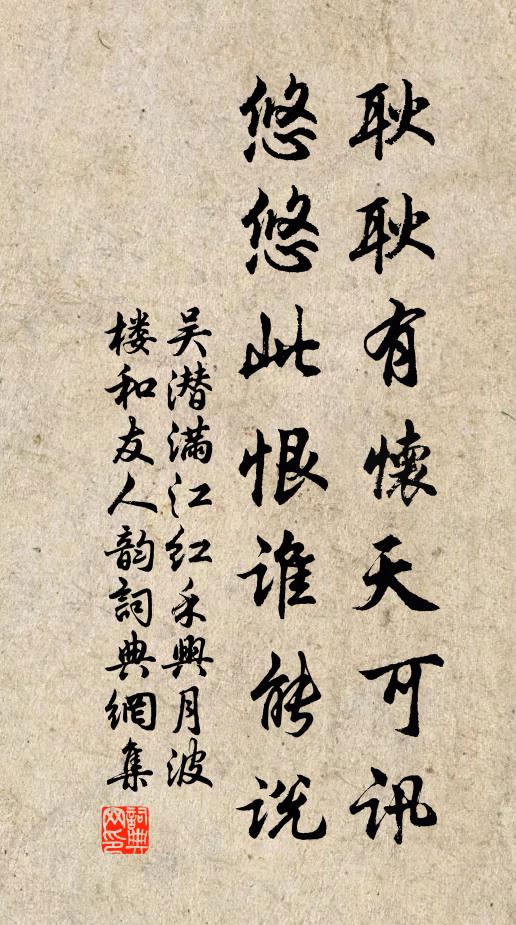 耿耿有懷天可讯
悠悠此恨谁能说
吴潜满江红禾興月波
楼和友人韵詞典網集
詞典网印